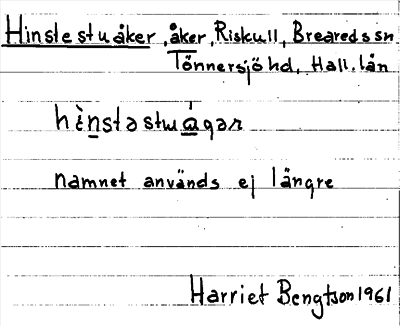 Hinslestuåker, åker, Riskull, Breareds sn
Tönnersjö hd, Hall. län
hı̀nstastuágar
namnet används ej längre
Harriet Bengtson 1961